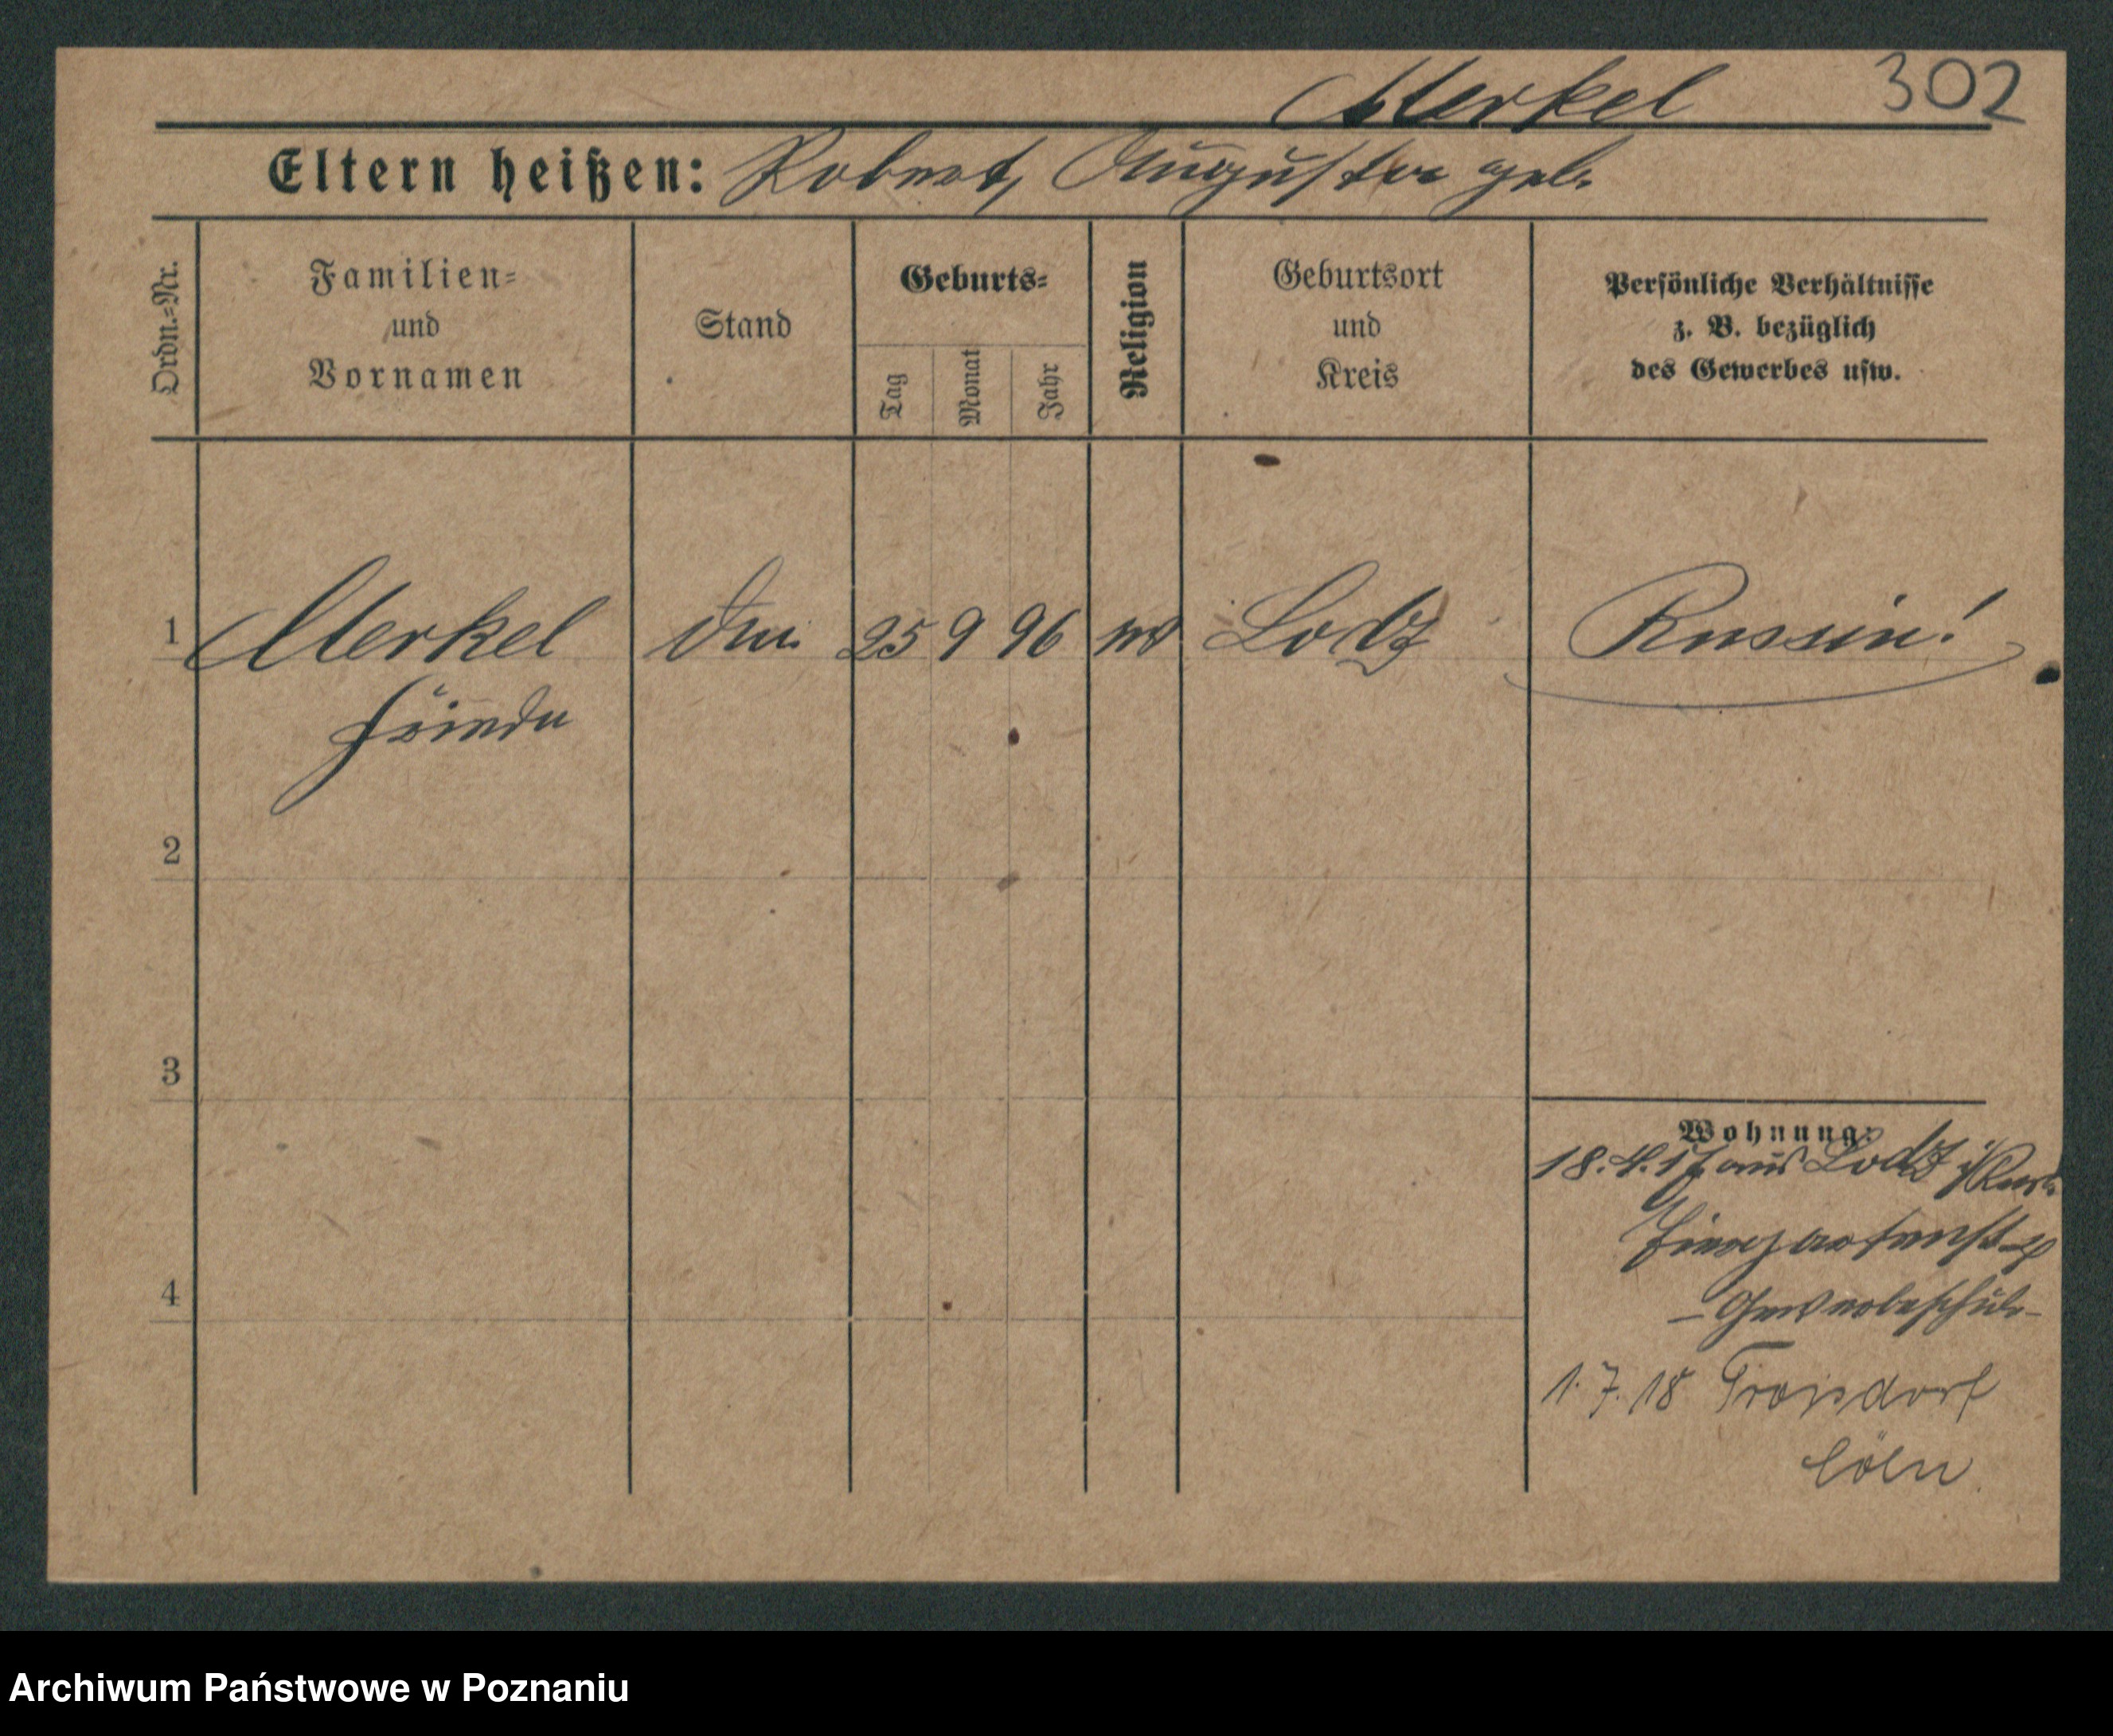 302
Merkel
Eltern heißen: Robert, Auguste geb.
Ordn.-Nr.
Familien-
und
Vornamen
Stand
Geburts-
Tag
Monat
Jahr
Religion
Geburtsort
und
Kreis
Persönliche Verhältnisse
z. B. bezüglich
des Gewerbes usw.
1 Merkel 25 9 96 Lodz Russin!
Frieda
2
3
4
Wohnung:
18.4.17 aus Lodz i/Russl.
Tiergartenstr.
– Gewerbeschule –
1.7.18 Troisdorf
Cöln
Archiwum Państwowe w Poznaniu